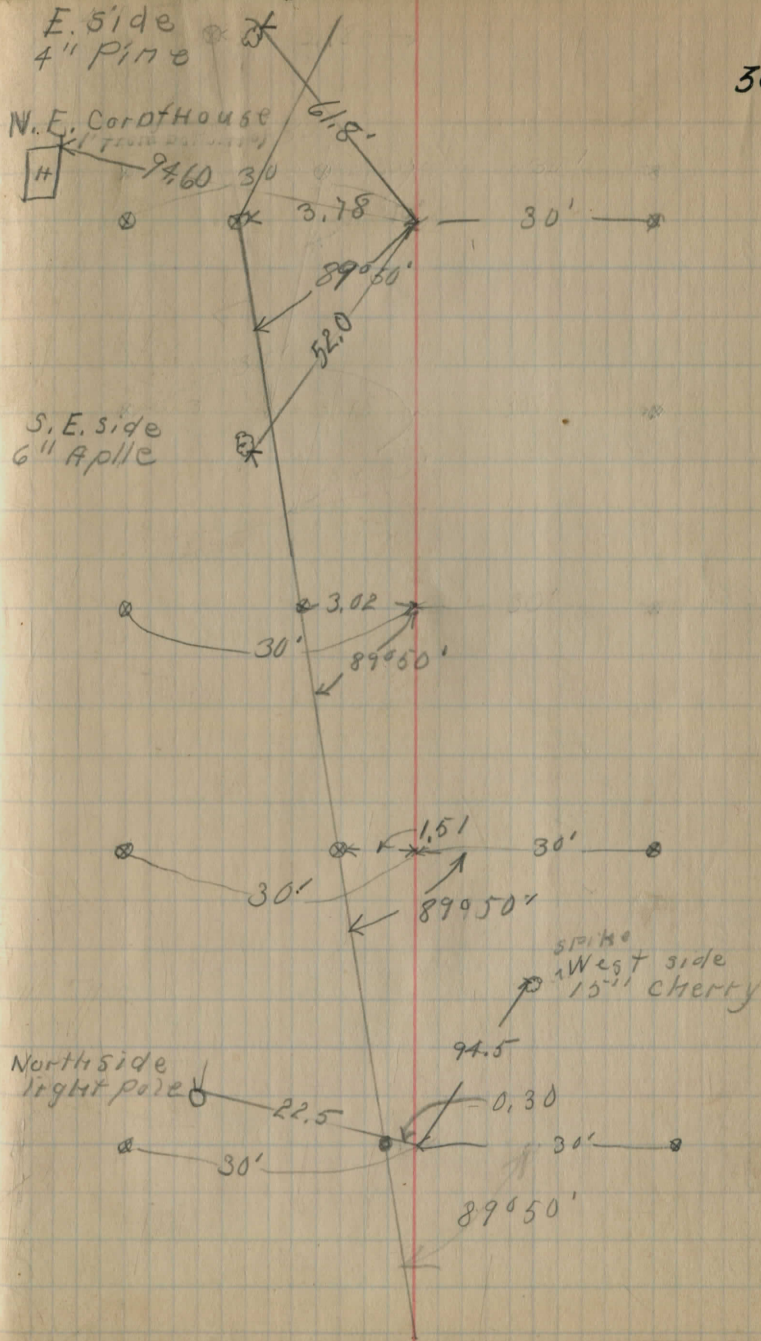 E. side
4" Pine
61.8'
N.E. Cor of House
H
94.60
30
3.78
30'
89°50'
52.0
S.E. side
6" Aplle
3.02
30'
89°50'
1.51
30'
30'
89°50'
spike
West side
15" Cherry
94.5
North side
light pole
22.5
0.30
30'
30'
89°50'